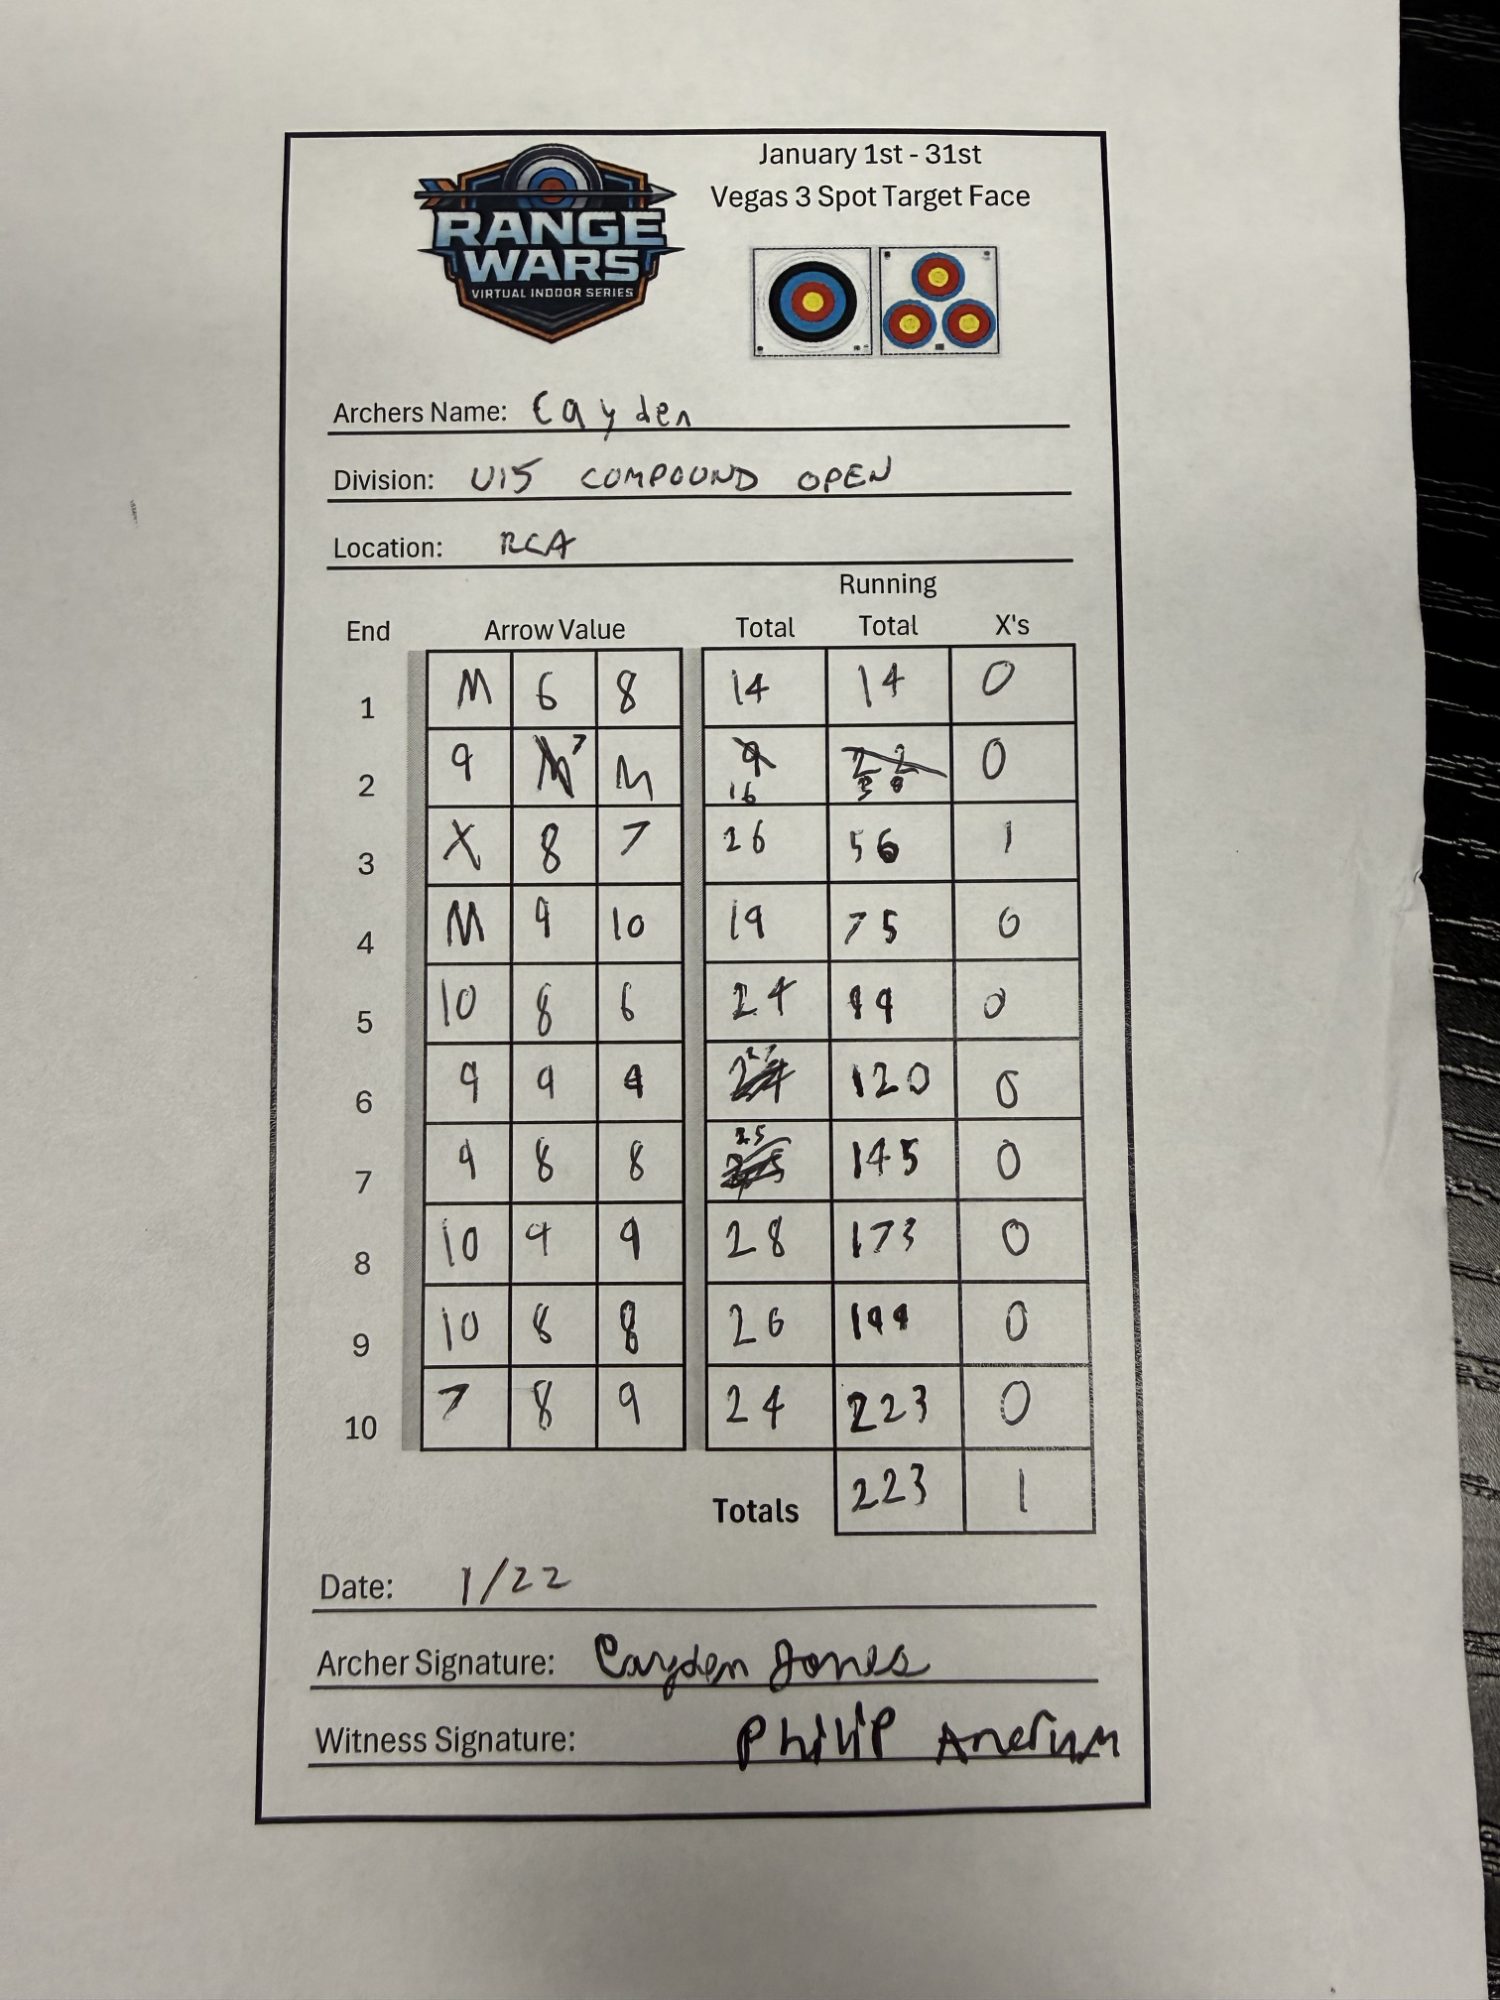 RANGE WARS
VIRTUAL INDOOR SERIES
January 1st - 31st
Vegas 3 Spot Target Face
Archers Name: Cayden
Division: U15 COMPOUND OPEN
Location: RCA
Running
End Arrow Value Total Total X's
1 M 6 8 14 14 0
2 9 M 7 M 9 16 22 30 0
3 X 8 7 26 56 1
4 M 9 10 19 75 0
5 10 8 6 24 99 0
6 9 9 9 27 120 0
7 9 8 8 25 145 0
8 10 9 9 28 173 0
9 10 8 8 26 199 0
10 7 8 9 24 223 0
Totals 223 1
Date: 1/22
Archer Signature: Cayden Jones
Witness Signature: Philip